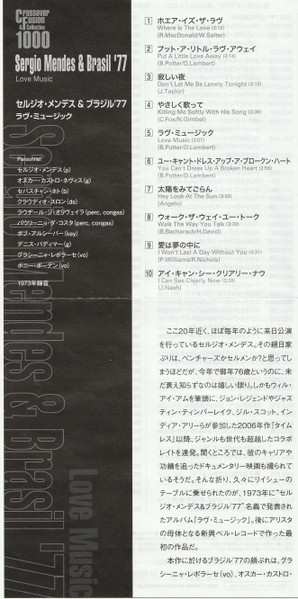 Crossover
Fusion
Collection
1000
Sergio Mendes & Brasil '77
Love Music
セルジオ・メンデス&ブラジル'77
ラヴ・ミュージック
Personnel:
セルジオ・メンデス(p)
オスカー・カストロ・ネヴィス(g)
セバスチャン・ネト(b)
クラウディオ・スロン(ds)
ラウヂール・ジ・オリヴェイラ(perc, congas)
パウリーニョ・ダ・コスタ(perc, congas)
ボブ・アルシーバー(key)
デニス・バディマー(g)
グラシーニャ・レポラーセ(vo)
ボニー・ボーデン(vo)
1973年録音
Sergio Mendes & Brasil '77
Love Music
1 ホエア・イズ・ザ・ラヴ
Where Is The Love
(R.MacDonald/W.Salter)
2 プット・ア・リトル・ラヴ・アウェイ
Put A Little Love Away
(B.Potter/D.Lambert)
3 寂しい夜
Don't Let Me Be Lonely Tonight
(J.Taylor)
4 やさしく歌って
Killing Me Softly With His Song
(C.Fox/N.Gimbel)
5 ラヴ・ミュージック
Love Music
(B.Potter/D.Lambert)
6 ユー・キャント・ドレス・アップ・ア・ブロークン・ハート
You Can't Dress Up A Broken Heart
(B.Potter/D.Lambert)
7 太陽をみてごらん
Hey Look At The Sun
(Angelo)
8 ウォーク・ザ・ウェイ・ユー・トーク
Walk The Way You Talk
(B.Bacharach/H.David)
9 愛は夢の中に
I Won't Last A Day Without You
(P.Williams/R.Nichols)
10 アイ・キャン・シー・クリアリー・ナウ
I Can See Clearly Now
(J.Nash)
ここ20年近く、ほぼ毎年のように来日公演
を行っているセルジオ・メンデス。その親日家
ぶりは、ベンチャーズかセルメンか?と思ってし
まうほどだが、今年で御年76歳というのに、未
だ衰え知らずなのは嬉しい限り。しかもウィル・
アイ・アムを筆頭に、ジョン・レジェンドやジャス
ティン・ティンバーレイク、ジル・スコット、イン
ディア・アリーらが参加した2006年作『タイム
レス』以降、ジャンルも世代も超越したコラボ
レイトを連発。聞くところでは、彼のキャリアや
功績を追ったドキュメンタリー映画も撮られて
いるそうだ。そんな折り、久々にリイシューの
テーブルに乗せられたのが、1973年に“セル
ジオ・メンデス&ブラジル'77”名義で発表され
たアルバム『ラヴ・ミュージック』。後にアリスタ
の母体となる新興ベル・レコードで作った最
初の作品だ。
本作に於けるブラジル'77の顔ぶれは、グラ
シーニャ・レポラーセ(vo)、オスカー・カストロ・